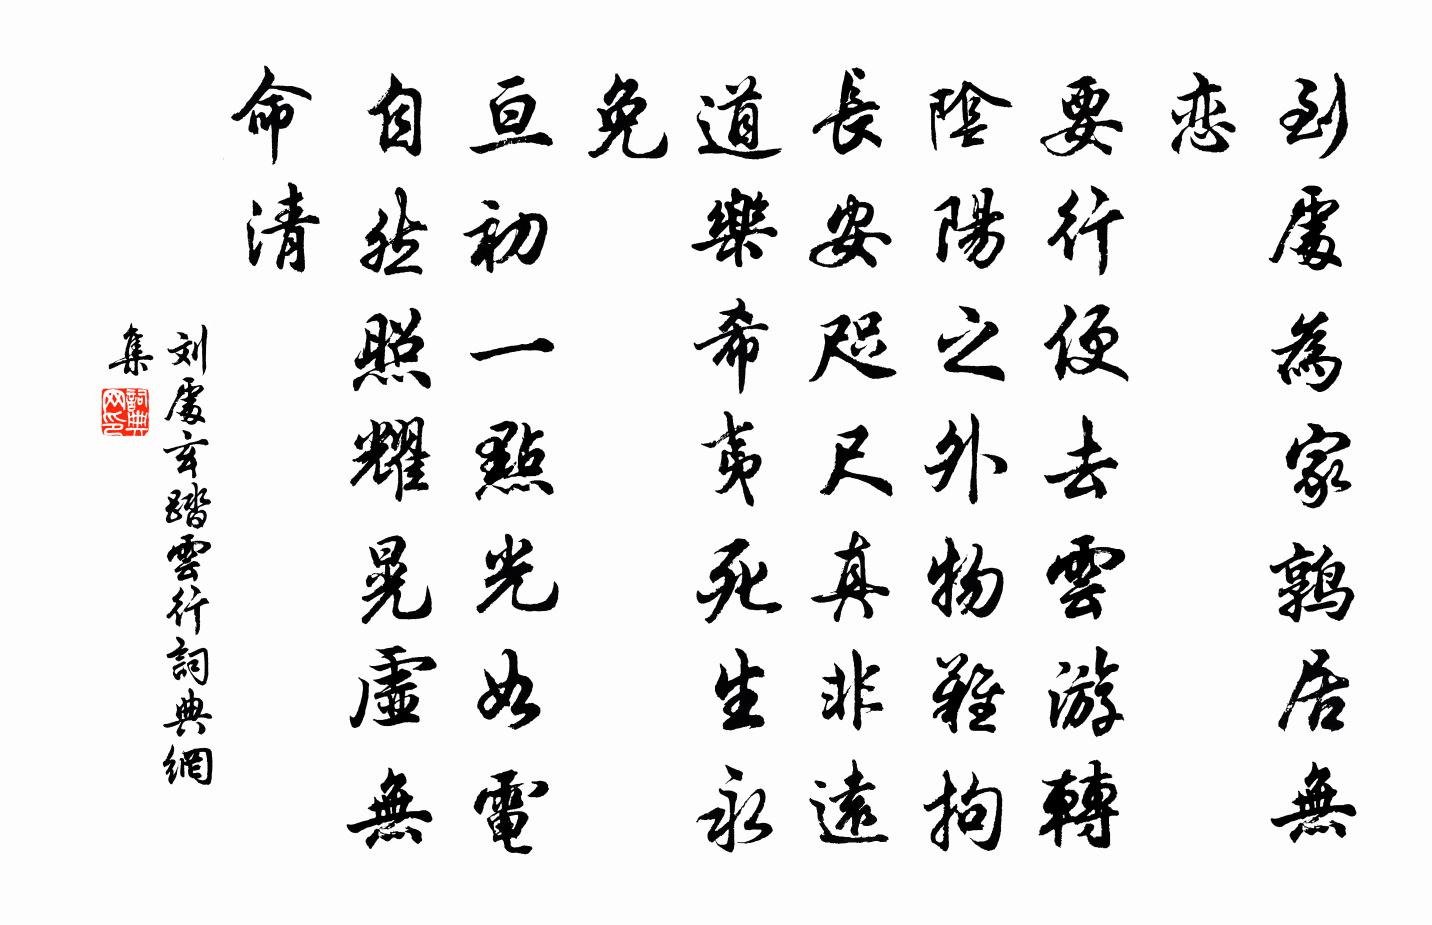 到處為家鶉居無
恋
要行便去雲游轉
陰陽之外物難拘
長安咫尺真非遠
道樂希夷死生永
免
亘初一點光如電
自然照耀晃虛無
命清
刘處玄踏雲行詞典網
集
詞典
网印